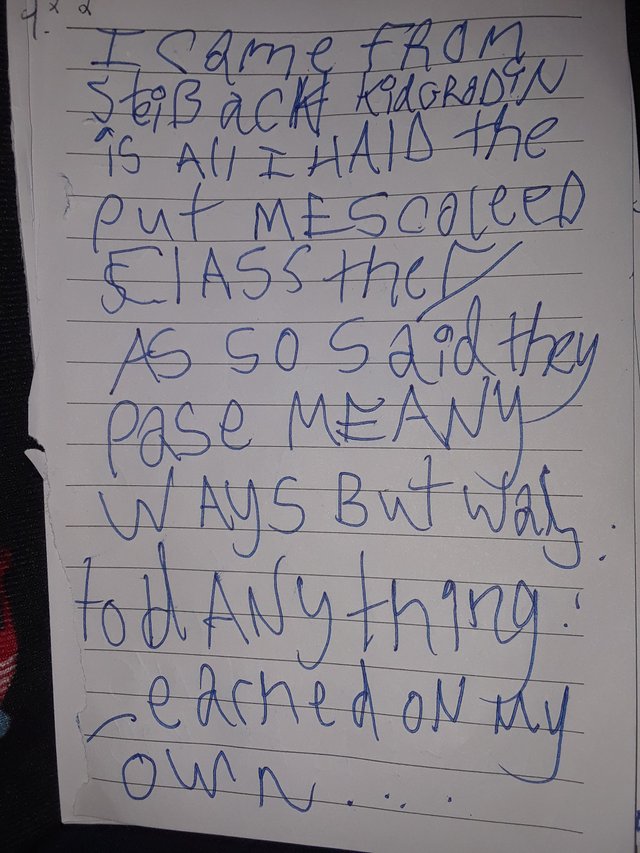 I came FROM
SteiBackt KidGRADiN
is All I HAID the
put MESCOleeD
ClASS the
AS SO Said they
pase MEANY
WAYS But way
told ANything
earned ON My
OWN.....